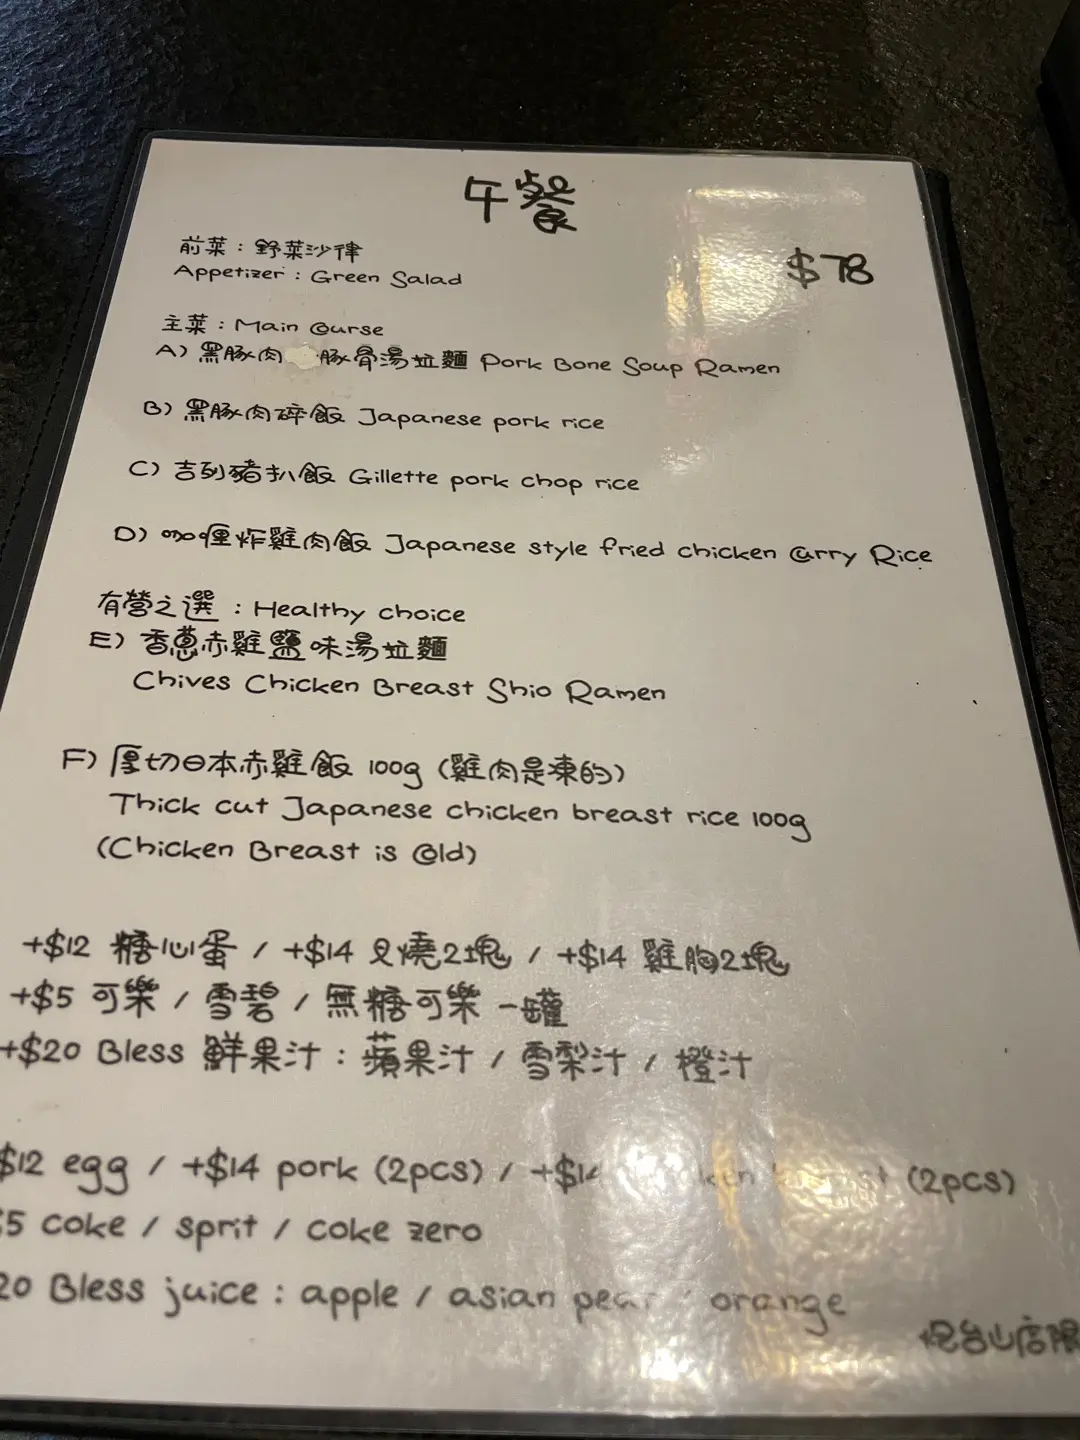 午餐
前菜：野菜沙律
Appetizer : Green Salad
$78
主菜 : Main Course
A) 黑豚肉 豚骨湯拉麵 Pork Bone Soup Ramen
B) 黑豚肉碎飯 Japanese pork rice
C) 吉列豬扒飯 Gillette pork chop rice
D) 咖喱炸雞肉飯 Japanese style fried chicken Curry Rice
有營之選 : Healthy choice
E) 香蔥赤雞鹽味湯拉麵
Chives Chicken Breast Shio Ramen
F) 厚切日本赤雞飯 100g (雞肉是凍的)
Thick cut Japanese chicken breast rice 100g
(Chicken Breast is Cold)
+$12 糖心蛋 / +$14 叉燒2塊 / +$14 雞胸2塊
+$5 可樂 / 雪碧 / 無糖可樂 一罐
+$20 Bless 鮮果汁 : 蘋果汁 / 雪梨汁 / 橙汁
$12 egg / +$14 pork (2pcs) / +$14 (2pcs)
5 coke / sprit / coke zero
20 Bless juice : apple / asian pear / orange
炮台山店限